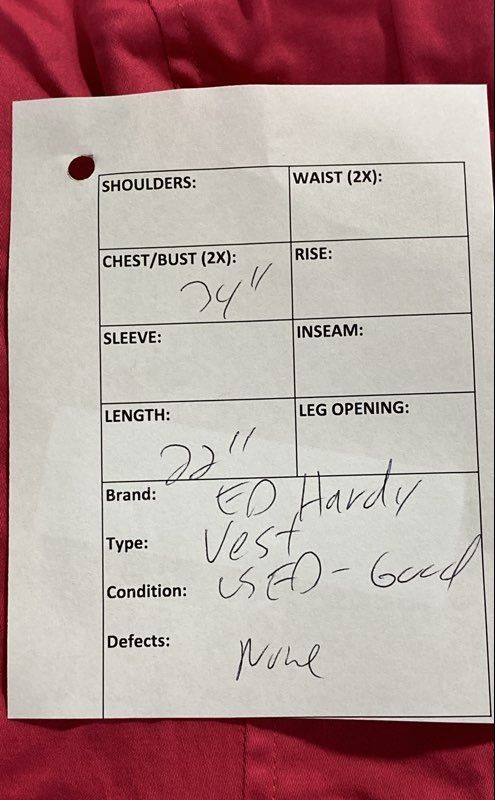 SHOULDERS: WAIST (2X):
CHEST/BUST (2X): RISE:
24"
SLEEVE: INSEAM:
LENGTH: LEG OPENING:
22"
Brand: ED Hardy
Type: Vest
Condition: USED - Good
Defects: None